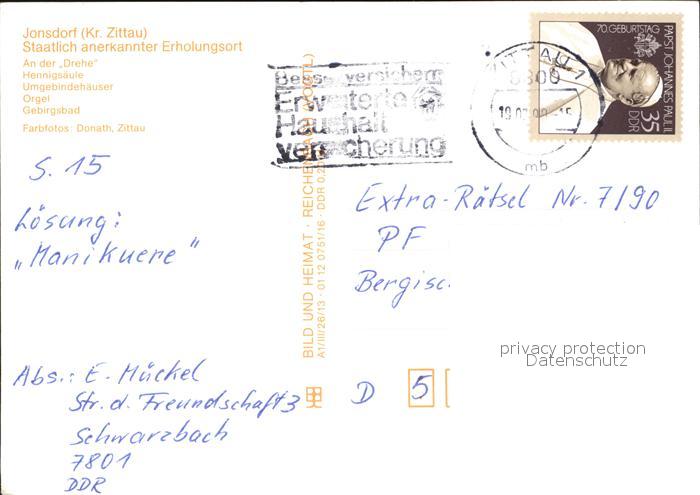 Jonsdorf (Kr. Zittau)
Staatlich anerkannter Erholungsort
An der „Drehe"
Hennigsäule
Umgebindehäuser
Orgel
Gebirgsbad
Farbfotos: Donath, Zittau
S. 15
Lösung:
„Manikuere"
Abs.: E. Mückel
Str. d. Freundschaft 3
Schwarzbach
7801
DDR
BILD UND HEIMAT · REICHENBACH (VOGTL)
A1/III/26/13 · 01 12 0751/16 · DDR
Erweiterte
Haushalt
versicherung
ZITTAU 1
mb
70. GEBURTSTAG
PAPST JOHANNES PAUL II.
35
DDR
Extra-Rätsel Nr. 7/90
PF
Bergisc
D 5
privacy protection
Datenschutz